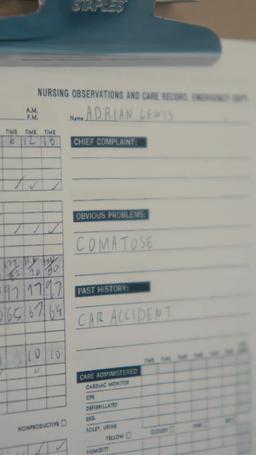 STAPLES
NURSING OBSERVATIONS AND CARE RECORD, EMERGENCY DEPT.
A.M.
P.M.
Name ADRIAN LEWIS
TIME TIME TIME
CHIEF COMPLAINT:
OBVIOUS PROBLEMS:
COMATOSE
97 97 97
PAST HISTORY:
67 69
CAR ACCIDENT
10 10
TIME TIME TIME TIME TIME TIME
CARE ADMINISTERED
CARDIAC MONITOR
CPR
DEFIBRILLATED
EKG
FOLEY, URINE
NONPRODUCTIVE
YELLOW
CLOUDY
HUMIDITY